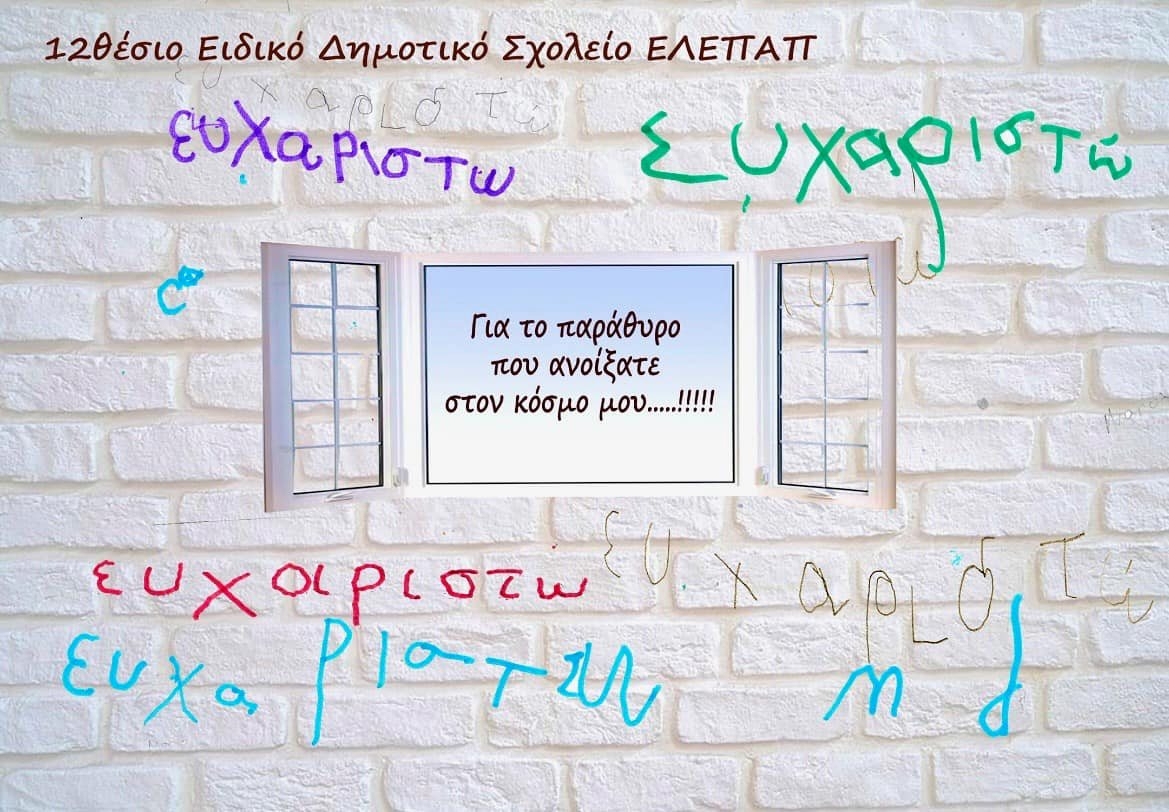 12θέσιο Ειδικό Δημοτικό Σχολείο ΕΛΕΠΑΠ
ευχαριστώ
ευχαριστω
ευχαριστώ
Για το παράθυρο
που ανοίξατε
στον κόσμο μου.....!!!!!
ευχαριστω
ευχαριστώ
ευχαριστω